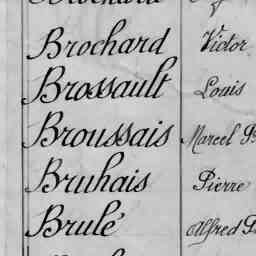 Brochard Victor
Brossault Louis
Broussais Marcel
Bruhais Pierre
Brulé Alfred